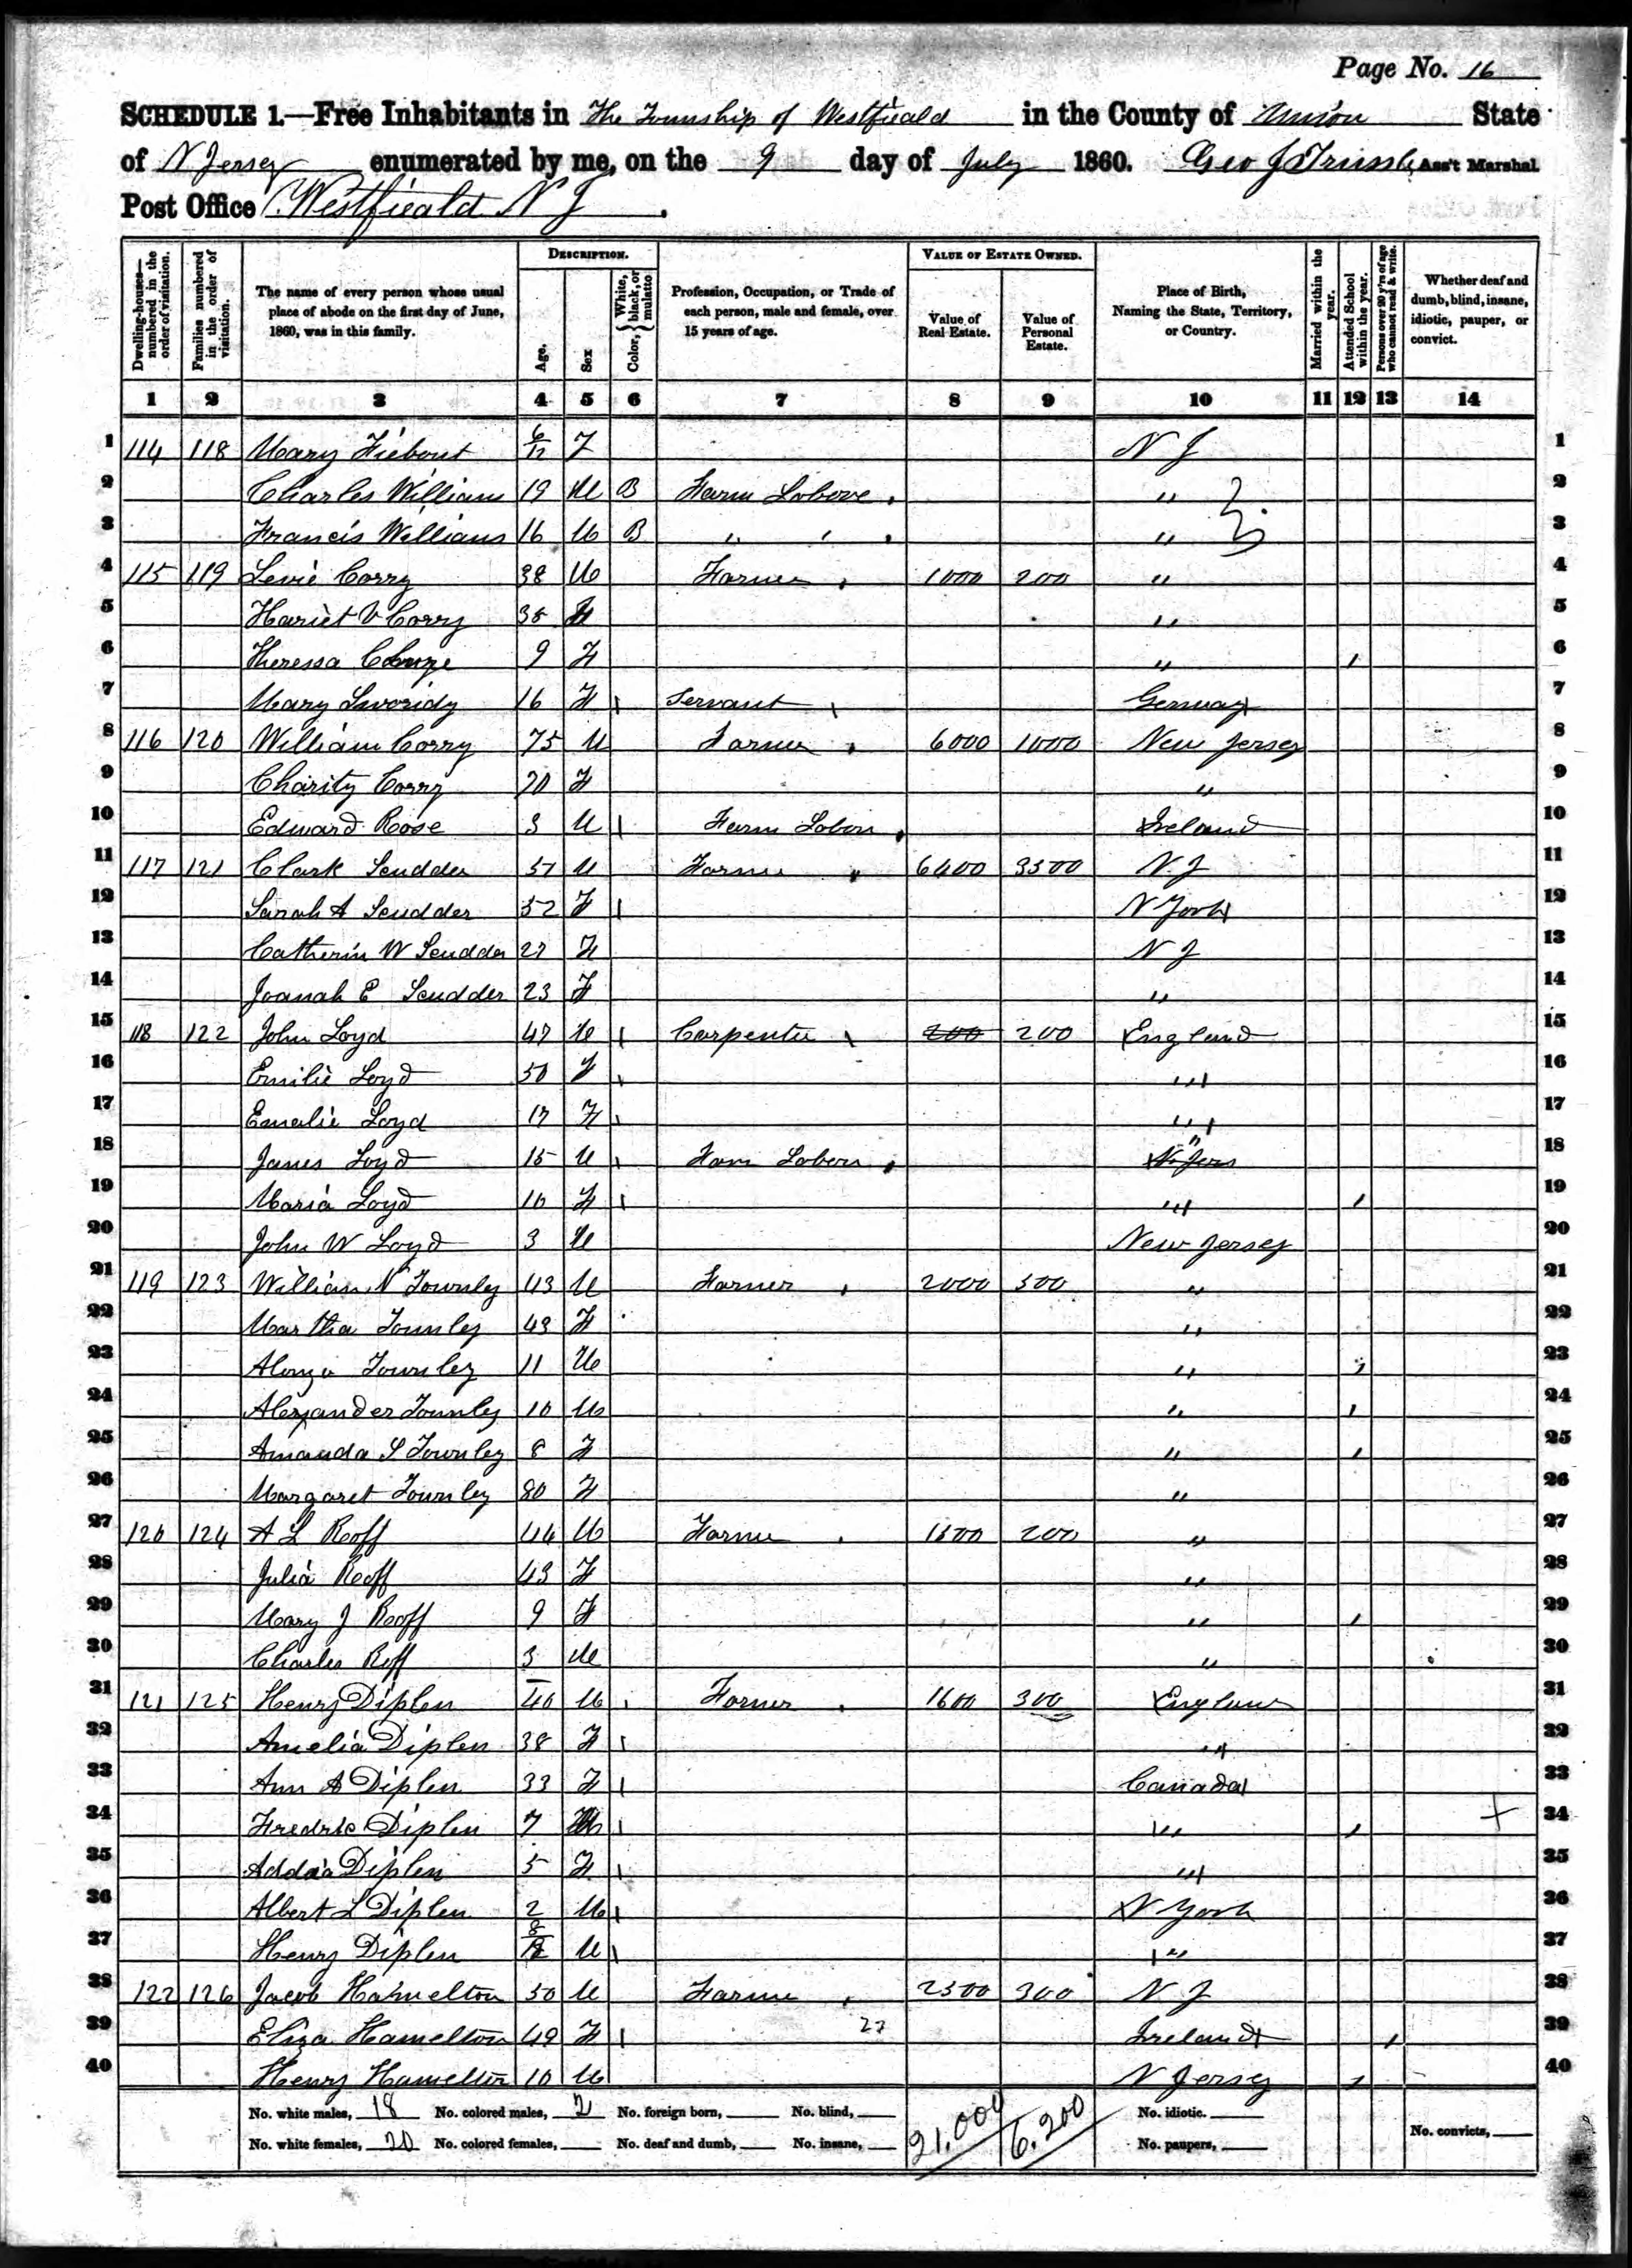 Page No. 16
SCHEDULE 1.—Free Inhabitants in The Township of Westfieald in the County of Union State
of N Jersey enumerated by me, on the 9 day of July 1860. Geo J Ass't Marshal.
Post Office Westfieald N J.
Dwelling-houses—numbered in the order of visitation.
Families numbered in the order of visitation.
The name of every person whose usual place of abode on the first day of June, 1860, was in this family.
DESCRIPTION.
Age.
Sex
Color, { White, black, or mulatto.
Profession, Occupation, or Trade of each person, male and female, over 15 years of age.
VALUE OF ESTATE OWNED.
Value of Real Estate.
Value of Personal Estate.
Place of Birth, Naming the State, Territory, or Country.
Married within the year.
Attended School within the year.
Persons over 20 y'rs of age who cannot read & write.
Whether deaf and dumb, blind, insane, idiotic, pauper, or convict.
1 2 3 4 5 6 7 8 9 10 11 12 13 14
1 114 118 Mary Tiebout 6/12 F N J 1
2 Charles William 19 M B Farm Labore " 2
3 Francis Williams 16 M B " " " 3
4 115 119 Levie Corry 38 M Farmer 1000 200 " 4
5 Hariet V Corry 35 F " 5
6 Theressa 9 F " 1 6
7 Mary 16 F Servant Germay 7
8 116 120 William Corry 75 M Farmer 6000 1000 New Jersey 8
9 Charity Corry 70 F " 9
10 Edward Rose 3 M Farm Labor Ireland 10
11 117 121 Clark Scudder 57 M Farmer 6400 3500 N. J 11
12 Sarah A Scudder 52 F N York 12
13 Catherin W Scudder 27 F N J 13
14 Joanah E Scudder 23 F " 14
15 118 122 John Loyd 47 M Carpenter 200 200 England 15
16 Emilie Loyd 50 F " 16
17 Emelie Loyd 17 F " 17
18 James Loyd 15 M Farm Laborer " N Jers 18
19 Maria Loyd 10 F " 1 19
20 John W Loyd 3 M New Jersey 20
21 119 123 William N Townley 43 M Farmer 2000 300 " 21
22 Martha Townley 43 F " 22
23 Alonzo Townley 11 M " 1 23
24 Alexander Townley 10 M " 1 24
25 Amanda S Townley 8 F " 1 25
26 Margaret Townley 80 F " 26
27 120 124 A L Rooff 44 M Farmer 1500 200 " 27
28 Julia Rooff 43 F " 28
29 Mary J Rooff 9 F " 1 29
30 Charles Roff 3 M " 30
31 121 125 Henry Diplen 40 M Farmer 1600 300 England 31
32 Amelia Diplen 38 F " 32
33 Ann A Diplen 33 F Canada 33
34 Fredric Diplen 7 M " 1 34
35 Addia Diplen 5 F " 35
36 Albert L Diplen 2 M N York 36
37 Henry Diplen 8/12 M " 37
38 122 126 Jacob Hamelton 50 M Farmer 2500 300 N J 38
39 Eliza Hamelton 49 F 27 Ireland 1 39
40 Henry Hamelton 10 M N Jersey 1 40
No. white males, 18 No. colored males, 2 No. foreign born, No. blind, 21,000 6,200 No. idiotic.
No. white females, 20 No. colored females, No. deaf and dumb, No. insane, No. paupers, No. convicts,